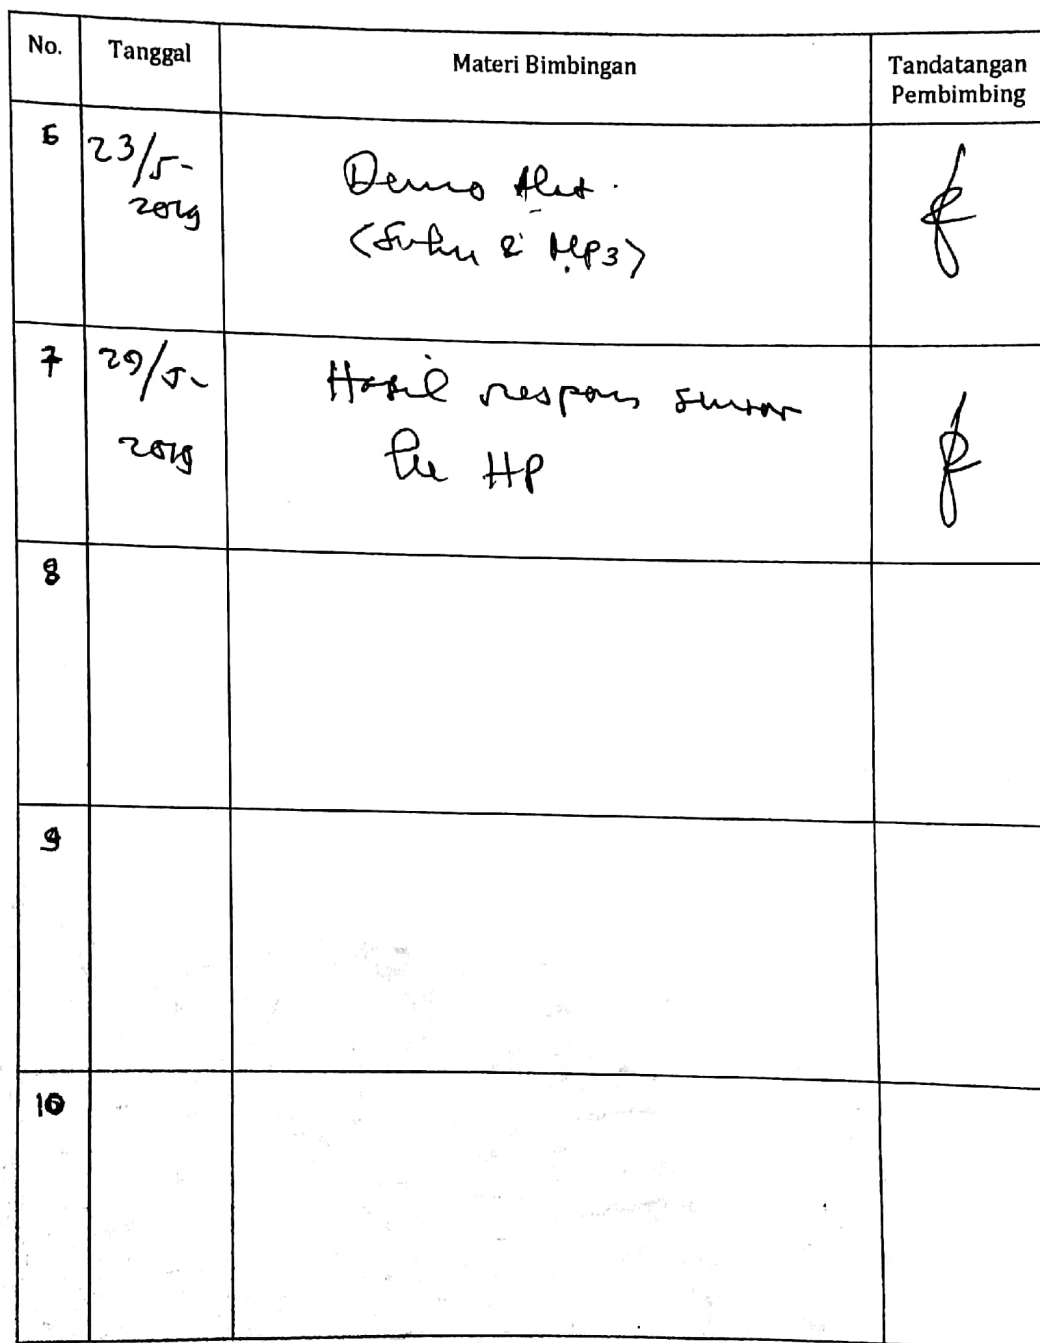 No. Tanggal Materi Bimbingan Tandatangan
Pembimbing
6 23/5-
2019
Demo Alat.
(Suhu & MP3)
7 29/5-
2019
Hasil respons sensor
ke HP
8
9
10